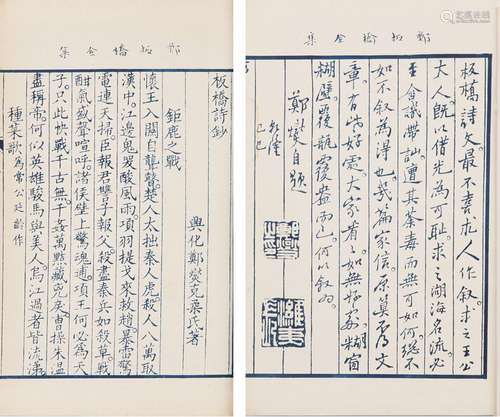 鄭板橋全集
板橋詩文最不喜求人作叙求之王公
大人既以借光為可恥求之湖海名流必
至含譏帶訕遭其荼毒而無可如何總不
如不叙為得也幾篇家信原算不得文
章有些好處大家看看如無好處糊窗
糊壁覆瓿覆盎而已何以叙為
乾隆己巳
鄭燮自題
鄭板橋全集
板橋詩鈔
興化鄭燮克柔氏著
鉅鹿之戰
懷王入關自聾瞽楚人太拙秦人虎殺人八萬取
漢中江邊鬼哭酸風雨項羽提戈來救趙暴雷驚
電連天掃臣報君讐子報父殺盡秦兵如殺草戰
酣氣盛聲喧呼諸侯壁上驚魂逋項王何必為天
子只此快戰千古無千姦萬黠藏兇戾曹操朱溫
盡稱帝何似英雄駿馬與美人烏江過者皆流涕
種菜歌為常公延齡作